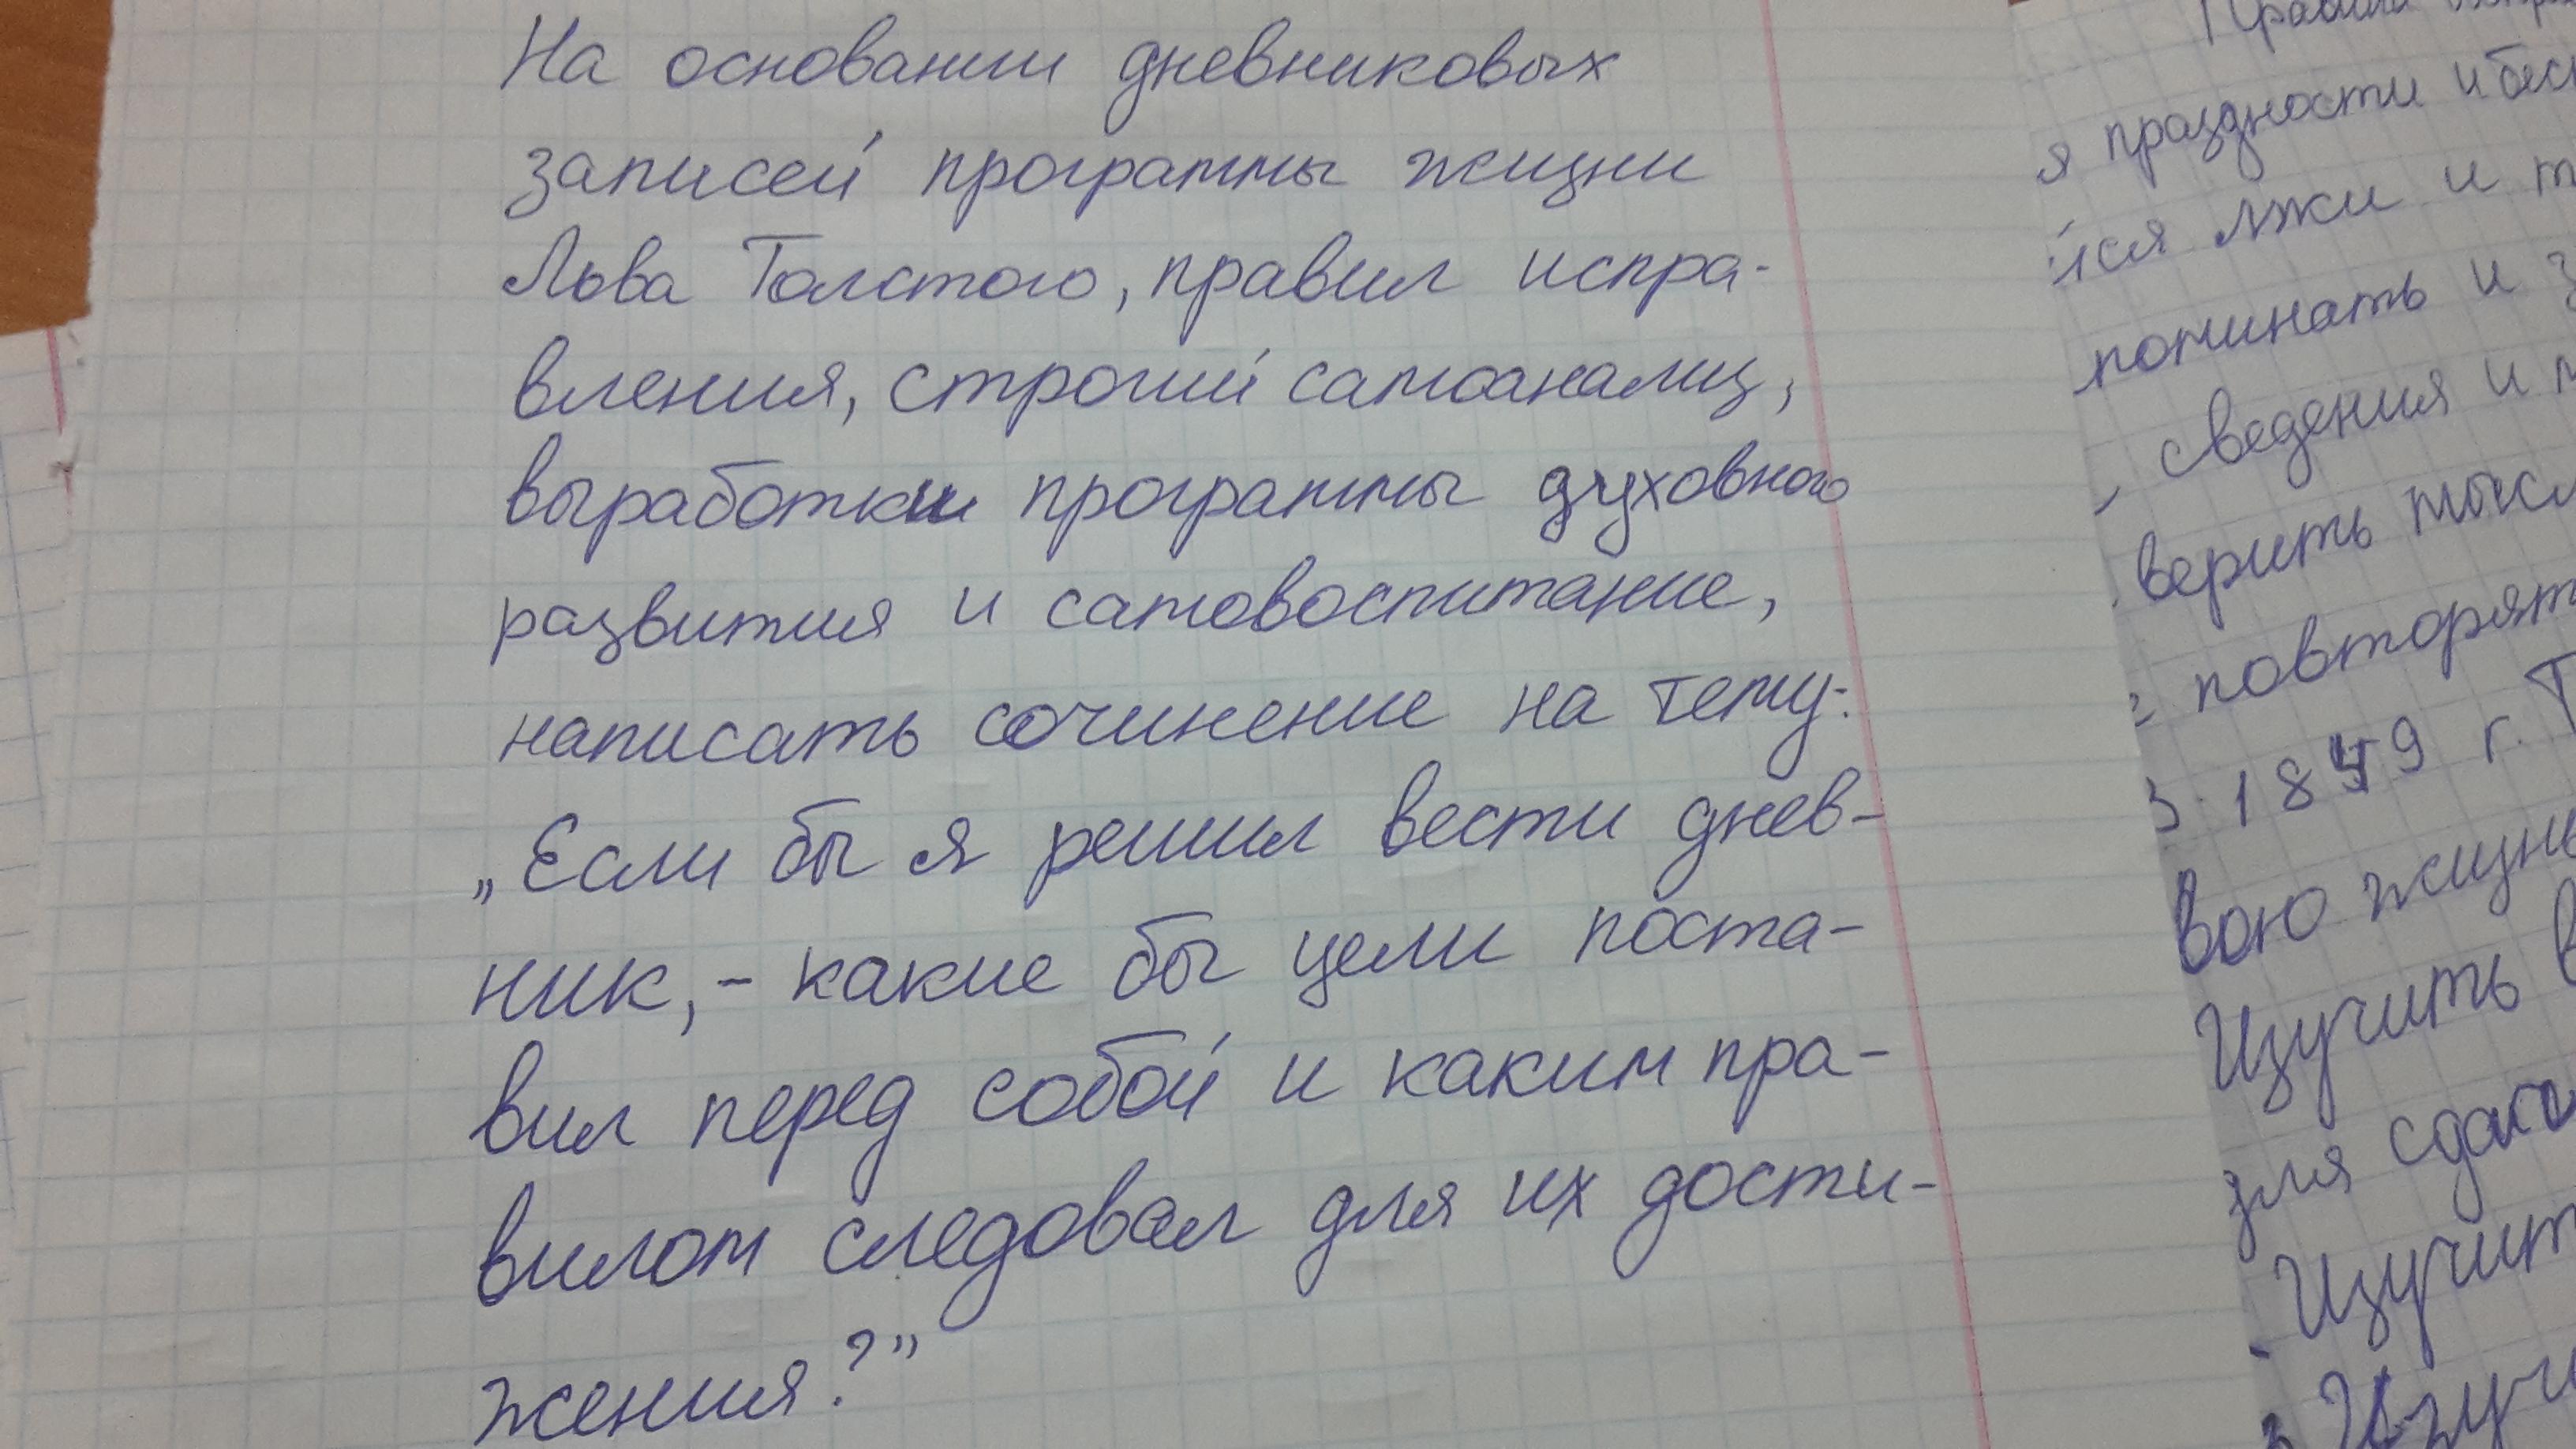 На основании дневниковых
записей программы жизни
Льва Толстого, правил испра-
вления, строгий самоанализ,
выработки программы духовного
развития и самовоспитание,
написать сочинение на тему:
„Если бы я решил вести днев-
ник, - какие бы цели поста-
вил перед собой и каким пра-
вилом следовал для их дости-
жения?”
Правила
я праздности и
йся лжи и
поминать и
сведения и
верить
повторят
1849 г. Т
вою жизн
Изучить в
для сдачи
Изучит
Изучи